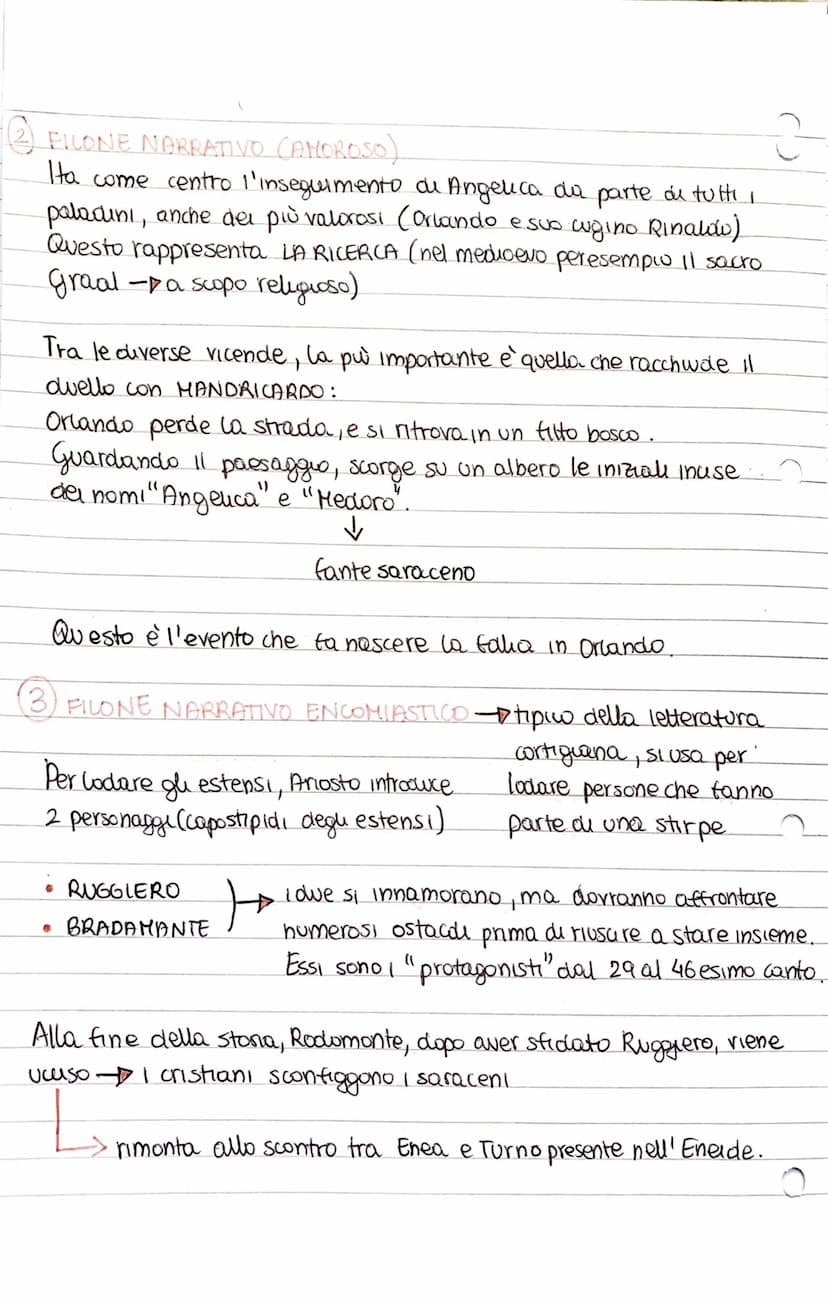 ② FILONE NARRATIVO (AMOROSO)
Ha come centro l'inseguimento di Angelica da parte di tutti i
paladini, anche dei più valorosi (Orlando e suo cugino Rinaldo)
Questo rappresenta LA RICERCA (nel medioevo per esempio il sacro
Graal → a scopo religioso)
Tra le diverse vicende, la più importante è quella che racchiude il
duello con MANDRICARDO:
Orlando perde la strada, e si ritrova in un fitto bosco.
Guardando il paesaggio, scorge su un albero le iniziali incise
dei nomi "Angelica" e "Medoro".
↓
fante saraceno
Questo è l'evento che fa nascere la follia in Orlando.
③ FILONE NARRATIVO ENCOMIASTICO → tipico della letteratura
cortigiana, si usa per
lodare persone che fanno
parte di una stirpe
Per lodare gli estensi, Ariosto introduce
2 personaggi (capostipidi degli estensi)
• RUGGIERO
• BRADAMANTE
→ i due si innamorano, ma dovranno affrontare
numerosi ostacoli prima di riuscire a stare insieme.
Essi sono i "protagonisti" dal 29 al 46esimo canto.
Alla fine della storia, Rodomonte, dopo aver sfidato Ruggiero, viene
ucciso → i cristiani sconfiggono i saraceni
→ rimonta allo scontro tra Enea e Turno presente nell'Eneide.